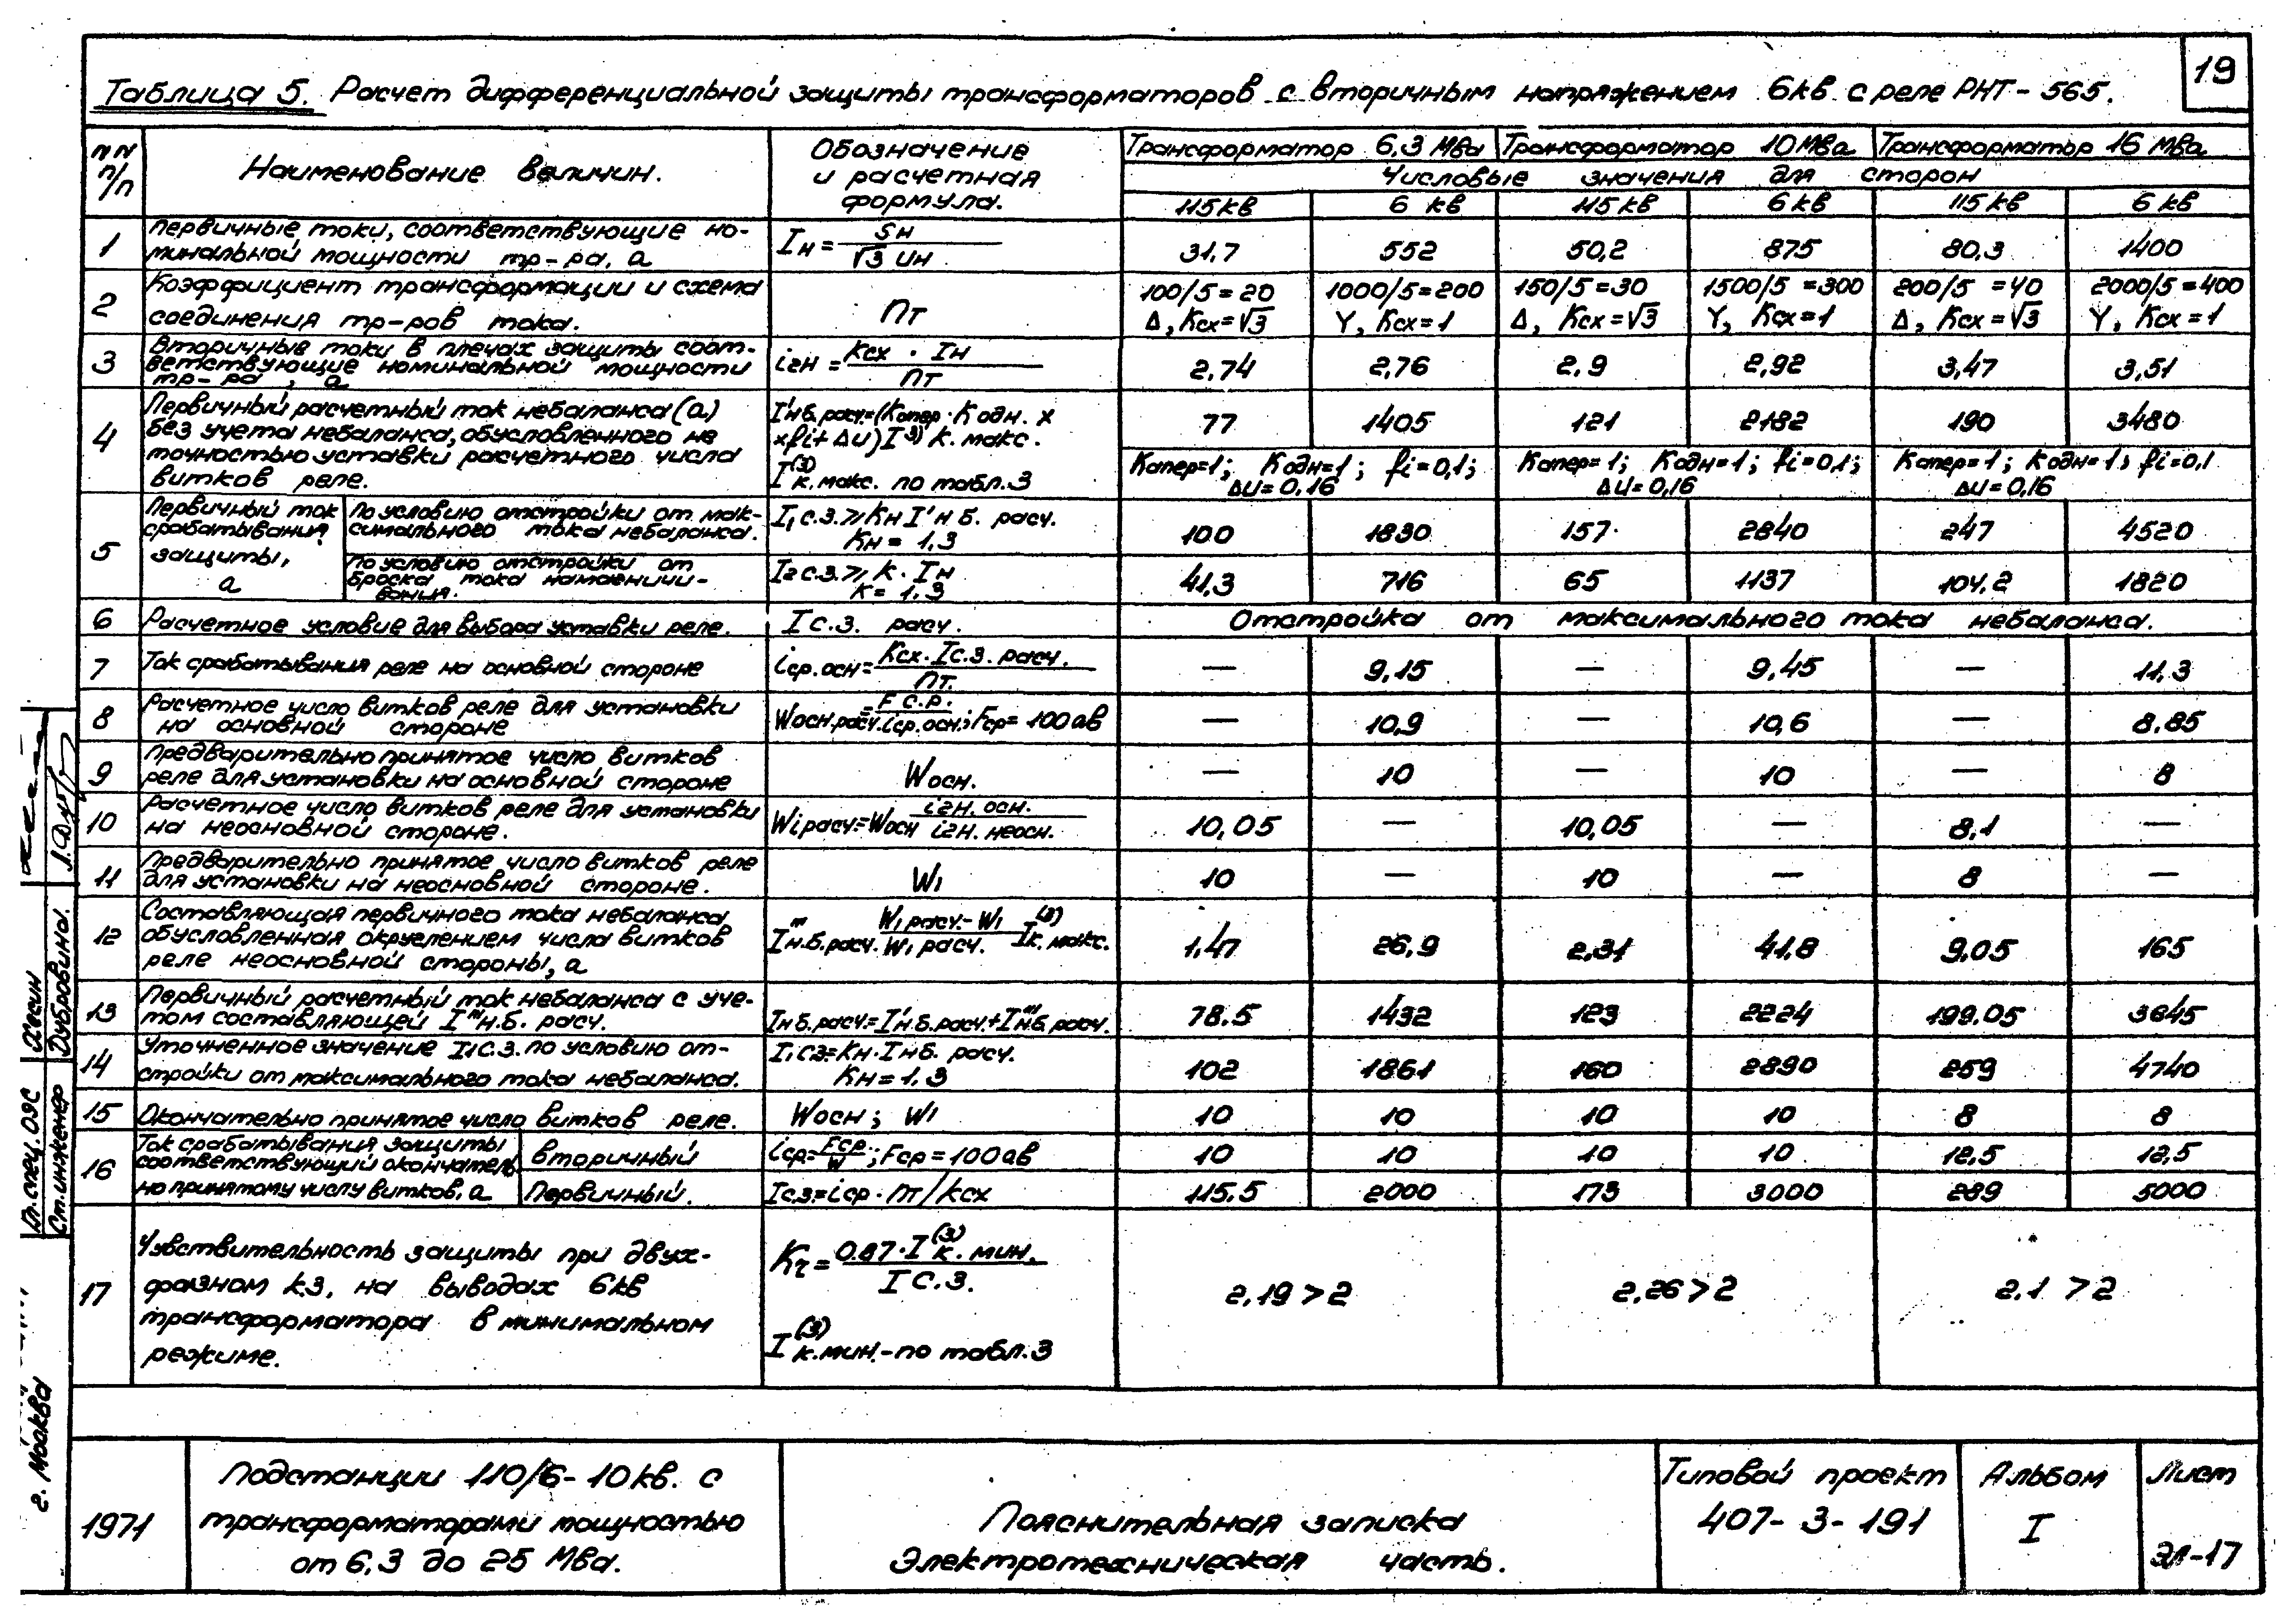 19
Таблица 5. Расчет дифференциальной защиты трансформаторов с вторичным напряжением 6кв с реле РНТ-565.
NN п/п
Наименование величин.
Обозначение и расчетная формула.
Трансформатор 6,3 Мва Трансформатор 10 Мва Трансформатор 16 Мва
Числовые значения для сторон
115кв 6 кв 115кв 6кв 115кв 6 кв
1 Первичные токи, соответствующие но-
минальной мощности тр-ра, а
Iн = Sн / √3 Uн
31,7 552 50,2 875 80,3 1400
2 Коэффициент трансформации и схема
соединения тр-ров тока.
nт
100/5=20 1000/5=200 150/5=30 1500/5=300 200/5=40 2000/5=400
Δ, Ксх=√3 Y, Ксх=1 Δ, Ксх=√3 Y, Ксх=1 Δ, Ксх=√3 Y, Ксх=1
3 Вторичные токи в плечах защиты соот-
ветствующие номинальной мощности
тр-ра, а
i2н = Ксх · Iн / nт
2,74 2,76 2,9 2,92 3,47 3,51
4 Первичный расчетный ток небаланса (а)
без учета небаланса, обусловленного не
точностью уставки расчетного числа
витков реле.
I'н.б.расч.=(Капер·Кодн. х
х fi+ΔU) I(3) к. макс.
I(3) к. макс. по табл.3
77 1405 121 2182 190 3480
Капер=1; Кодн=1; fi=0,1; Капер=1; Кодн=1; fi=0,1; Капер=1; Кодн=1; fi=0,1
ΔU=0,16 ΔU=0,16 ΔU=0,16
5 Первичный ток
срабатывания
защиты,
а
По условию отстройки от мак-
симального тока небаланса.
I1 с.з.⩾Кн I'н б. расч.
Кн = 1,3
100 1830 157 2840 247 4520
По условию отстройки от
броска тока намагничи-
вания.
I2 с.з.⩾ К · Iн
К = 1,3
41,3 716 65 1137 104,2 1820
6 Расчетное условие для выбора уставки реле.
I с.з. расч.
Отстройка от максимального тока небаланса.
7 Ток срабатывания реле на основной стороне
iср.осн=Ксх·Iс.з. расч. / nт.
— 9,15 — 9,45 — 11,3
8 Расчетное число витков реле для установки
на основной стороне
Wосн.расч.=F с.р. / iср.осн.; Fср=100ав
— 10,9 — 10,6 — 8,85
9 Предварительно принятое число витков
реле для установки на основной стороне
Wосн.
— 10 — 10 — 8
10 Расчетное число витков реле для установки
на неосновной стороне.
W1расч=Wосн i2н. осн. / i2н. неосн.
10,05 — 10,05 — 8,1 —
11 Предварительно принятое число витков реле
для установки на неосновной стороне.
W1
10 — 10 — 8 —
12 Составляющая первичного тока небаланса,
обусловленная округлением числа витков
реле неосновной стороны, а
I'''н.б.расч. W1 расч.- W1 / W1 расч. I(3) к. макс.
1,47 26,9 2,31 41,8 9,05 165
13 Первичный расчетный ток небаланса с уче-
том составляющей I'''н.б. расч.
Iн б.расч.=I'н.б.расч.+I'''н.б.расч.
78.5 1432 123 2224 199,05 3645
14 Уточненное значение I1с.з. по условию от-
стройки от максимального тока небаланса.
I1 сз=Кн·Iнб. расч.
Кн = 1,3
102 1861 160 2890 259 4740
15 Окончательно принятое число витков реле.
Wосн; W1
10 10 10 10 8 8
16 Ток срабатывания защиты
соответствующий окончатель
но принятому числу витков, а
вторичный
iср=Fср / W; Fср=100ав
10 10 10 10 12,5 12,5
Первичный.
Iс.з=iср·nт/ксх
115,5 2000 173 3000 289 5000
17 Чувствительность защиты при двух-
фазном к.з, на выводах 6кв
трансформатора в минимальном
режиме.
Кч = 0.87·I(3) к. мин. / I с.з.
I(3) к.мин.-по табл.3
2,19 > 2 2,26 > 2 2,1 > 2
Хесин
Дубровина
Гл.спец.ОЭС
Ст.инженер
г. Москва
1971
Подстанции 110/6-10кв. с
трансформаторами мощностью
от 6,3 до 25 Мва.
Пояснительная записка
Электротехническая часть.
Типовой проект
407-3-191
Альбом
I
Лист
ЭЛ-17